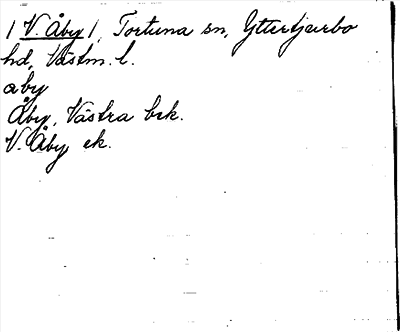 / V. Åby /, Tortuna sn, Yttertjurbo
hd, Västm. l.
aby
Åby, Västra bsk.
V. Åby ek.